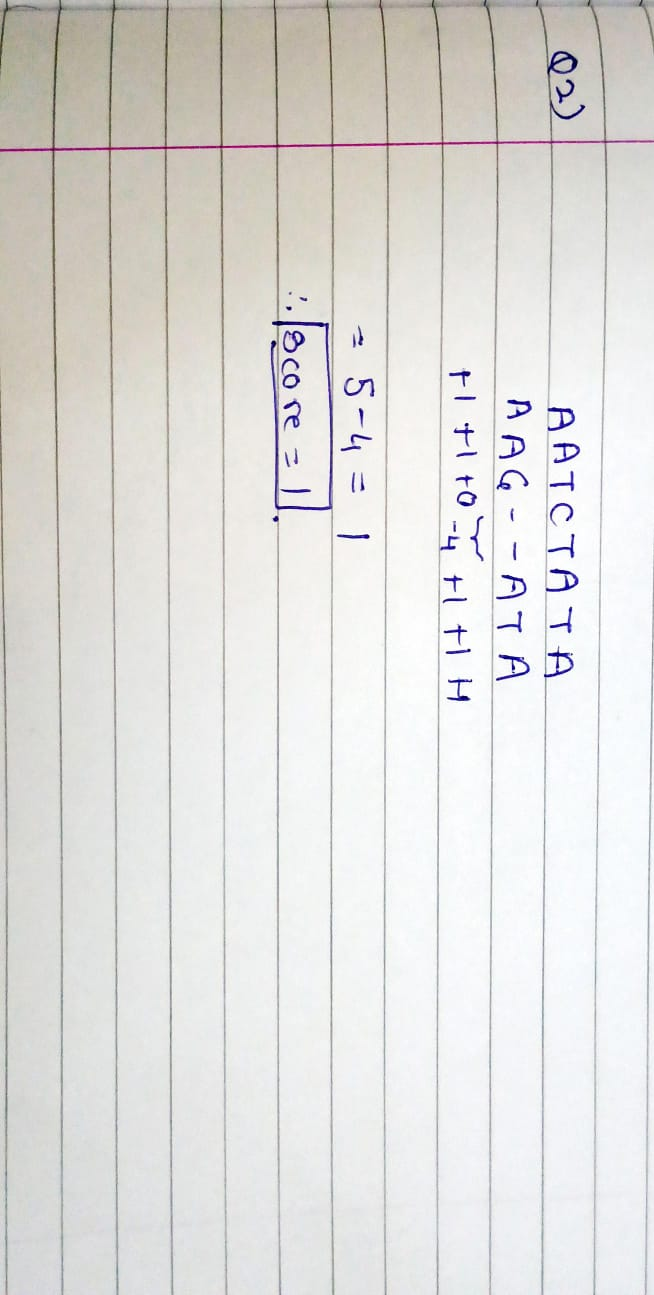 Q2)
AATCTATA
AAG--ATA
+1 +1 +0 -4 +1 +1 +1
= 5-4 = 1
∴ Score = 1.